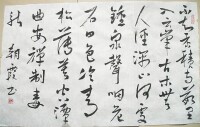 不知香積寺數里
入雲峰古木無
人徑深山何處
鐘泉聲咽危
石日色冷青
松薄暮空潭
曲安禪制毒
龍 朝霞